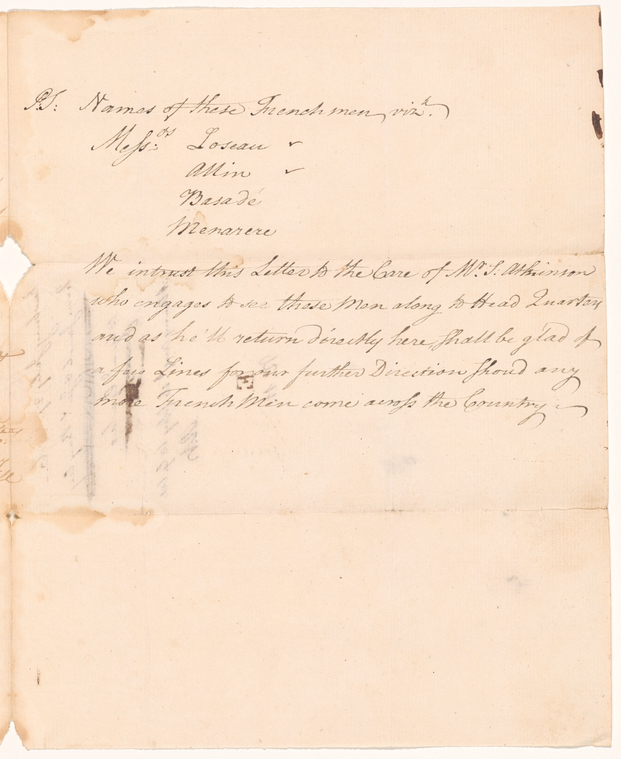 P.S: Names of these Frenchmen, vizt.
Messrs: Loseau
Allin
Basadé
Menarere
We intrust this Letter to the Care of Mr. S: Atkinson
who engages to see these Men along to Head Quarters
and as he'll return directly here, shall be glad of
a few Lines for our further Direction shoud any
more French Men come across the Country.